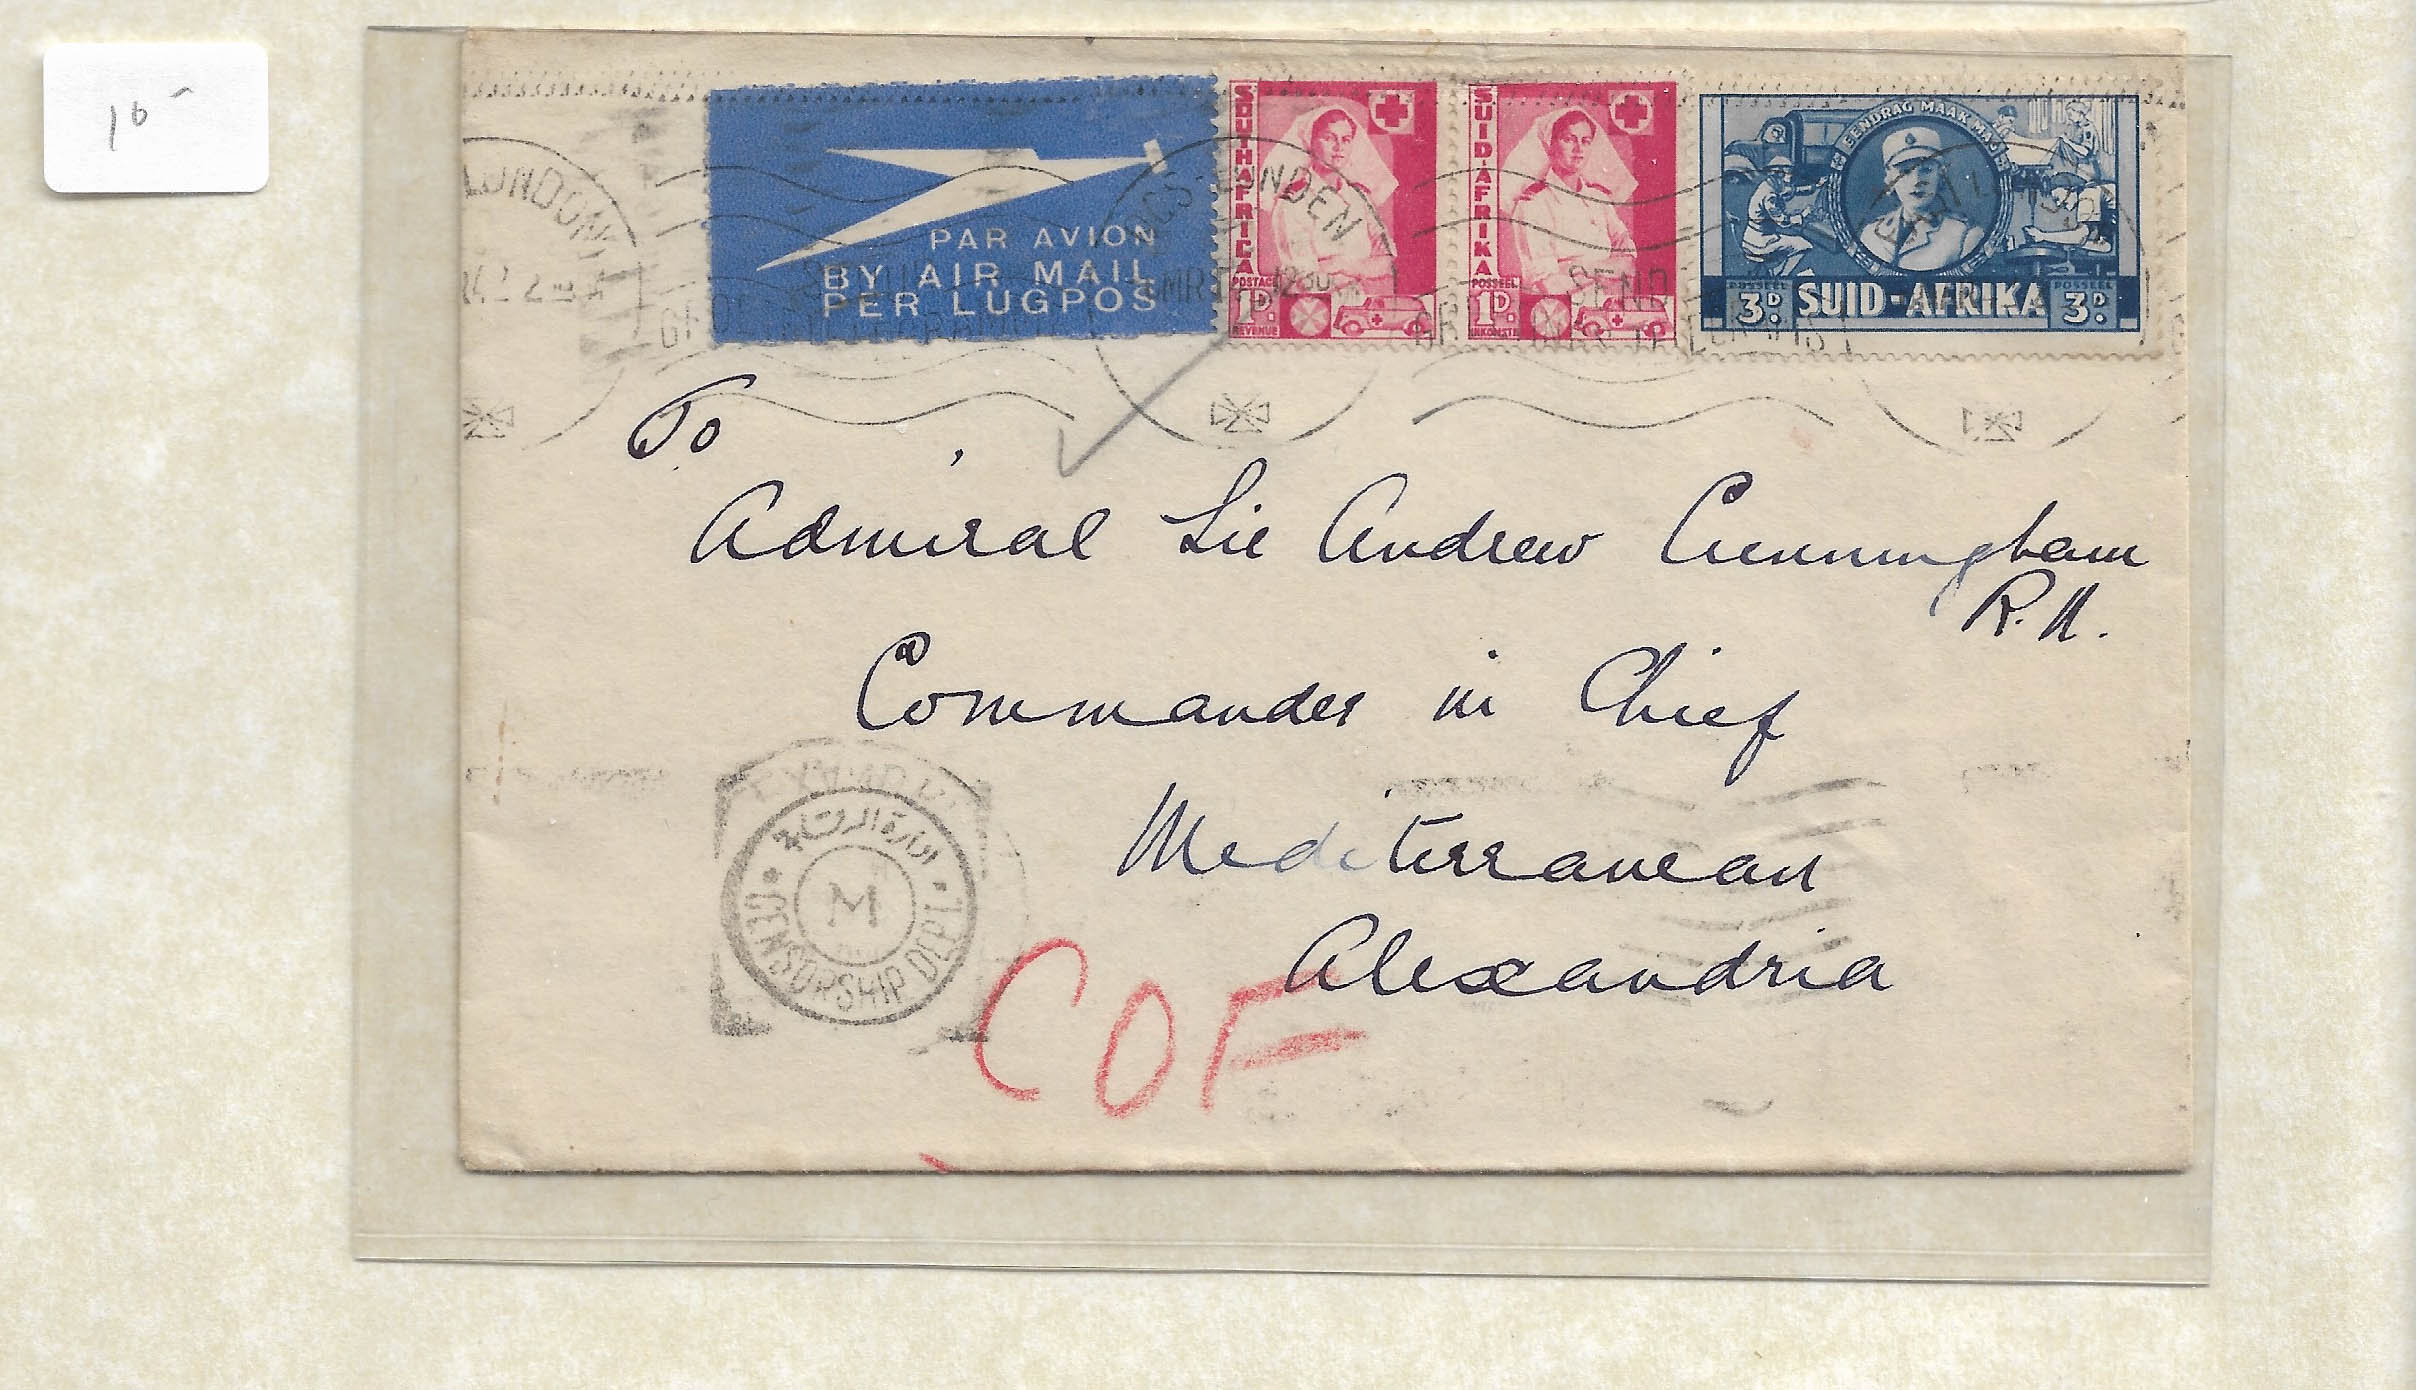 10-
LONDON
PAR AVION
BY AIR MAIL
PER LUGPOS
SOUTH AFRICA
POSTAGE
1D.
REVENUE
SUID-AFRIKA
POSSEEL
1D.
INKOMSTE
EENDRAG MAAK MAG
POSSEEL
3D.
SUID-AFRIKA
POSSEEL
3D.
SEND
To
Admiral Sir Andrew Cunningham
R.N.
Commander in Chief
Mediterranean
Alexandria
ادارة الرقابة
M
CENSORSHIP DEPT.
COF